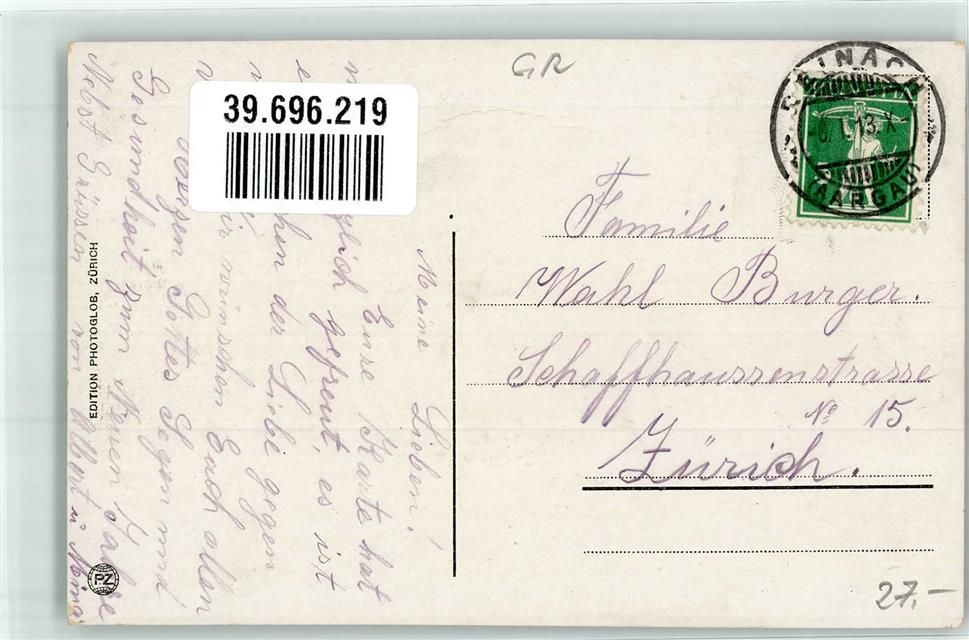 GR
39.696.219
REINACH
(AARGAU)
Familie
Wahl Burger.
Schaffhaussenstrasse
No 15.
Zürich.
27.-
Meine Lieben!
Eure Karte hat
gefreut, es ist
der Liebe gegen
wir wünschen Euch allen
Gottes Segen und
Gesundheit zum Neuen Jahre
Nebst Grüssen von Albert u
EDITION PHOTOGLOB, ZÜRICH
PZ